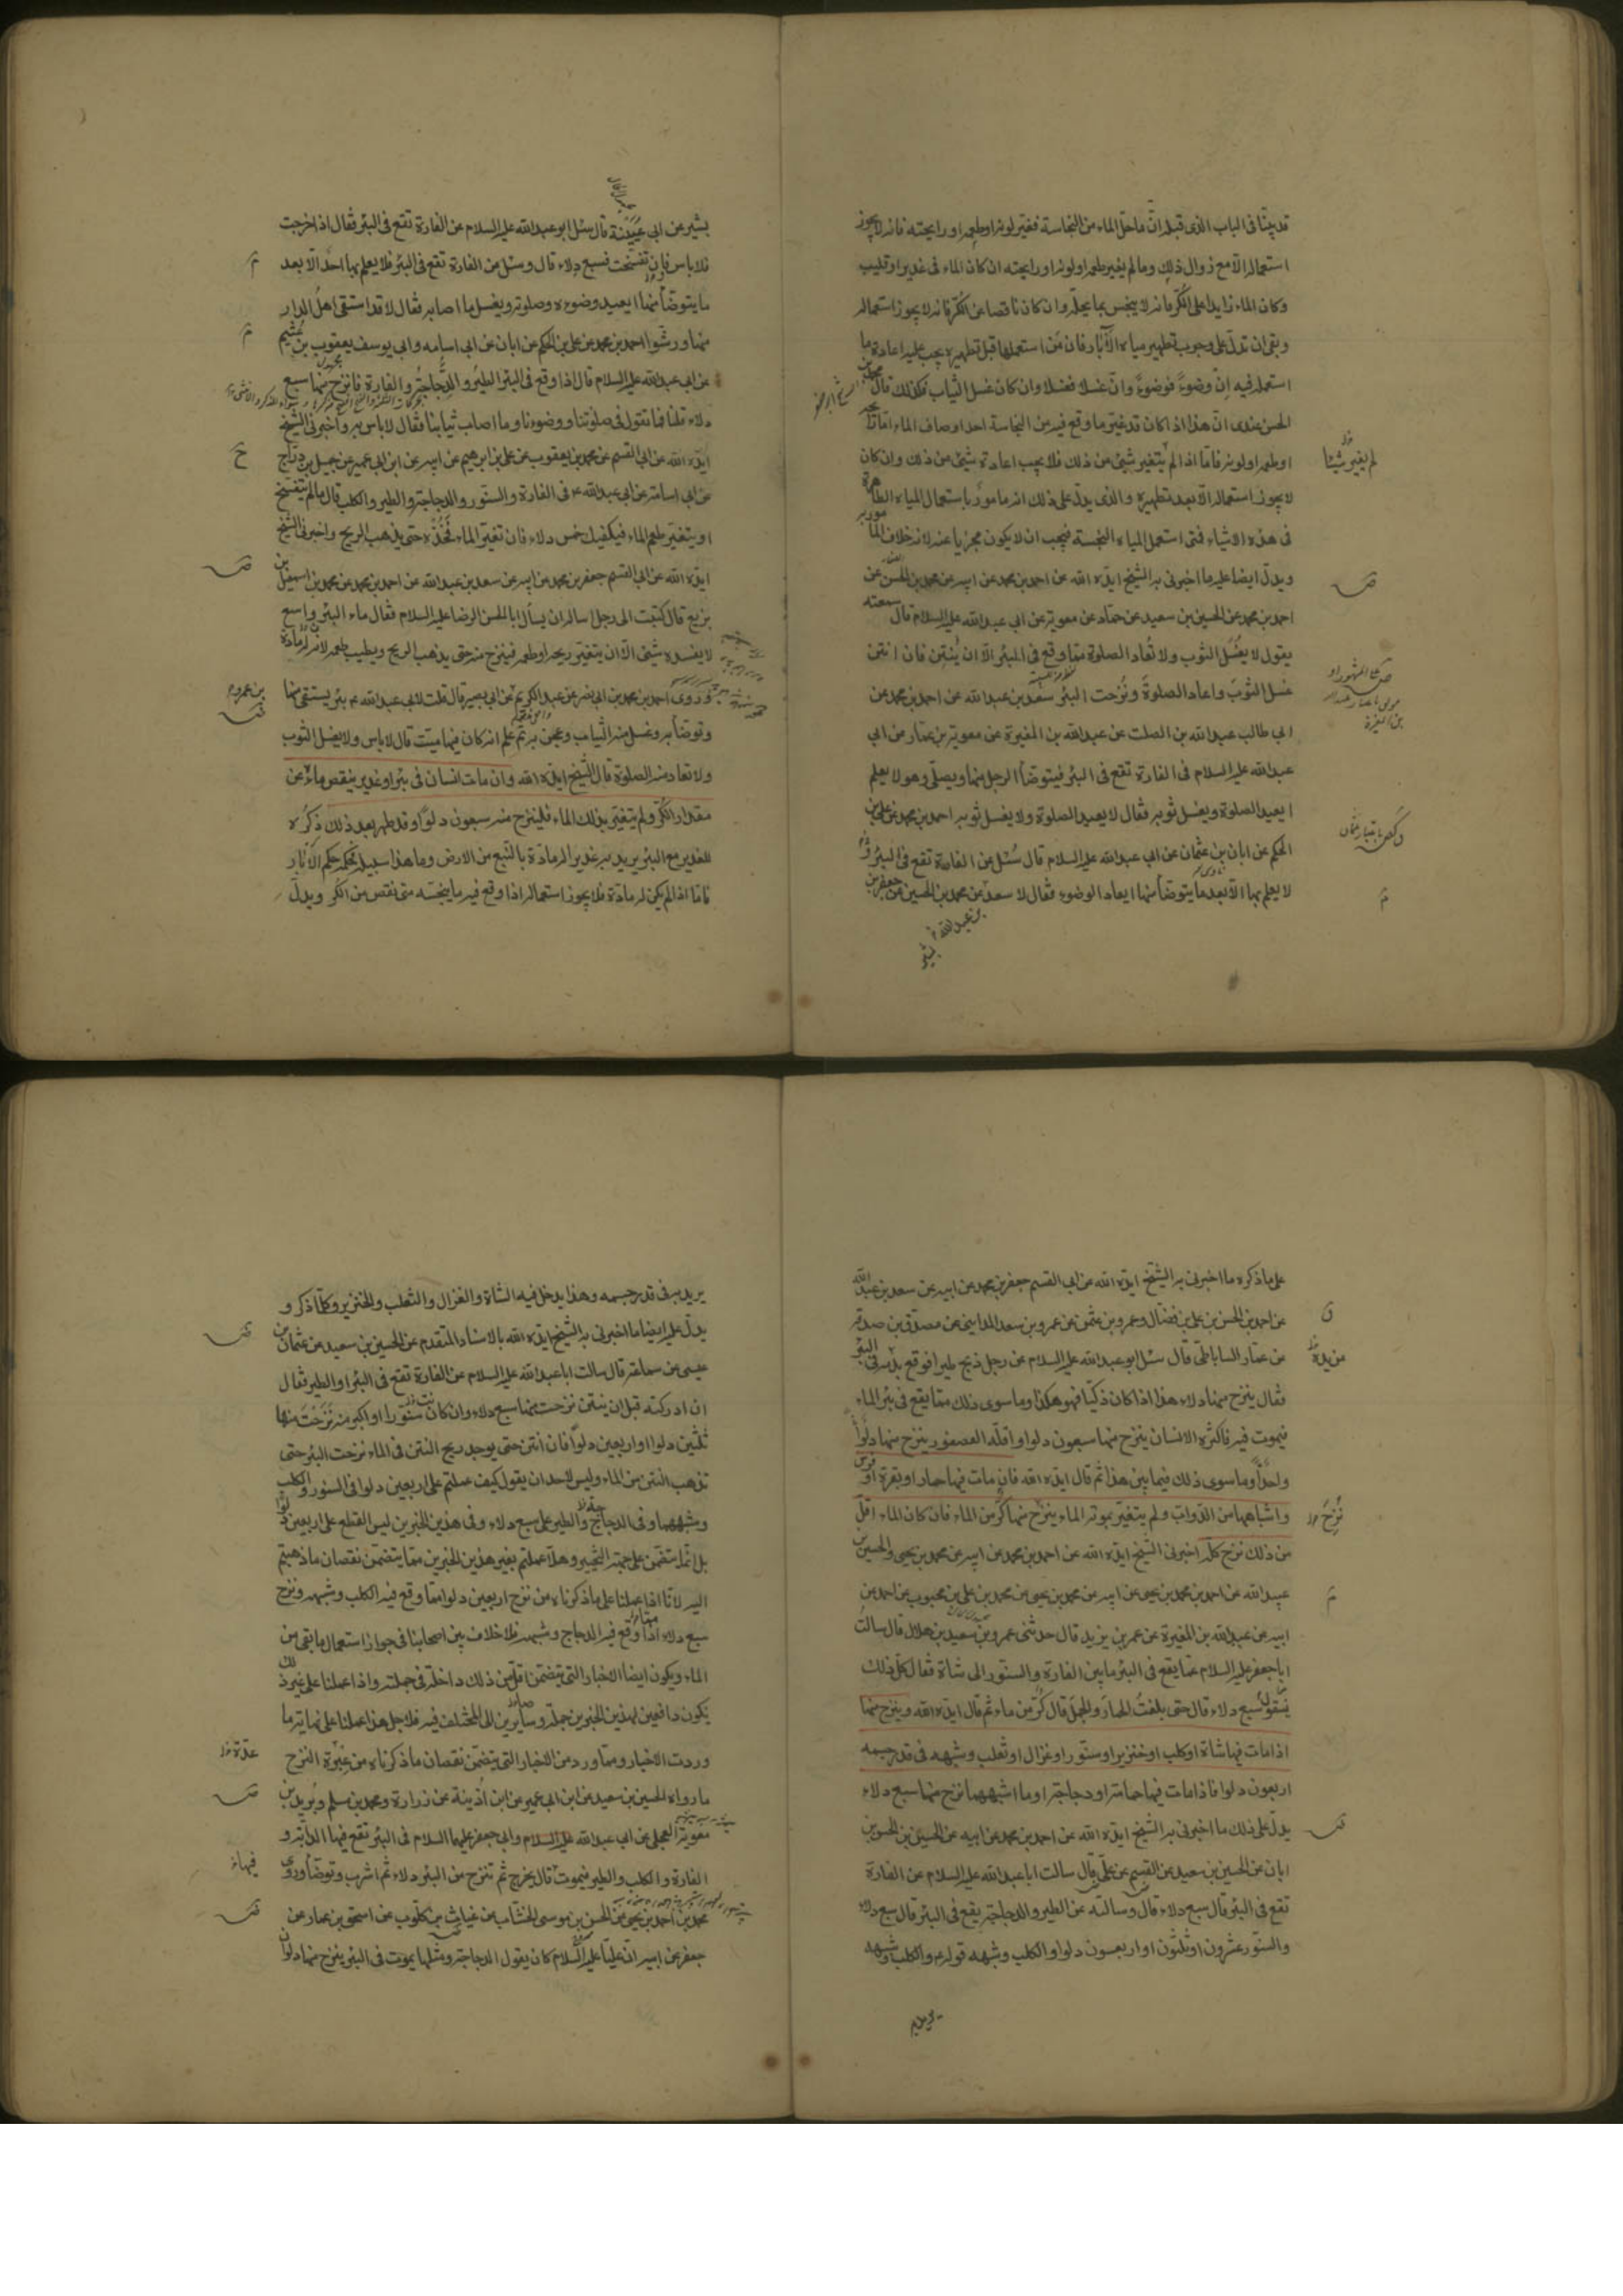 قد بيّنا فى الباب الذى قبله انّ ماحلّ الماء من النجاسة فغير لونه اوطعمه اورايحته فانه لايجوز
استعماله الّا مع زوال ذلك ومالم يغير طعمه اولونه اورايحته ان كان الماء فى غدير اوقليب
وكان الماء زايدا على الكرّ فانه لاينجس بما يحلّه وان كان ناقصا عن الكرّ فانه لايجوز استعماله
وبقى ان ندلّ على وجوب تطهير مياه الآبار فان من استعملها قبل تطهيره يجب عليه اعادة ما
استعمله فيه ان وضوءً فوضوءً وان غسلا فغسلا وان كان غسل الثياب فكذلك قال محمد بن
الحسن عندى انّ هذا اذا كان قد غير ما وقع فيه من النجاسة احد اوصاف الماء امّا
اوطعمه اولونه فامّا اذا لم يتغير شئ من ذلك فلا يجب اعادة شئ من ذلك وان كان
لم يغير شيئا
لايجوز استعماله الّا بعد تطهيره والذى يدلّ على ذلك انه مامور باستعمال المياه الطاهرة
فى هذه الاشياء فمتى استعمل المياه النجسة فيجب ان لايكون مجزيا عنه لانه خلاف المامور به
ويدلّ ايضا عليه ما اخبرنى به الشيخ ايّده الله عن احمد بن محمد عن ابيه عن محمد بن الحسن عن
احمد بن محمد عن الحسين بن سعيد عن حماد عن معوية عن ابى عبدالله عليه السلام قال سمعته
يقول لايغسل الثوب ولا تعاد الصلوة مما وقع فى البئر الّا ان ينتن فان انتن
غسل الثوب واعاد الصلوة ونزحت البئر سعد بن عبدالله عن احمد بن محمد عن
ابى طالب عبدالله بن الصلت عن عبدالله بن المغيرة عن معوية بن عمار عن ابى
عبدالله عليه السلام فى الفارة تقع فى البئر فيتوضأ الرجل منها ويصلّى وهو لايعلم
ايعيد الصلوة ويغسل ثوبه فقال لايعيد الصلوة ولا يغسل ثوبه احمد بن محمد عن على بن
الحكم عن ابان بن عثمان عن ابى عبدالله عليه السلام قال سئل عن الفارة تقع فى البئر
لايعلم بها الّا بعد ما يتوضأ منها ايعاد الوضوء فقال لا سعد عن محمد بن الحسين عن جعفر بن
بشير عن ابى عيينة قال سئل ابوعبدالله عليه السلام عن الفارة تقع فى البئر فقال اذا خرجت
فلاباس فان تفسخت فسبع دلاء قال وسئل عن الفارة تقع فى البئر فلا يعلم بها احد الّا بعد
مايتوضأ منها ايعيد وضوءه وصلوته ويغسل ما اصابه فقال لا قد استقى اهل الدار
منها ورشوا احمد بن محمد عن على بن الحكم عن ابان عن ابى اسامه وابى يوسف يعقوب بن عثيم
عن ابى عبدالله عليه السلام قال اذا وقع فى البئر الطير والدجاجة والفارة فانزح منها سبع
دلاء قلنا فما تقول فى صلوتنا ووضوءنا وما اصاب ثيابنا فقال لاباس به واخبرنى الشيخ
ايّده الله عن ابى القسم عن محمد بن يعقوب عن على بن ابرهيم عن ابيه عن ابن ابى عمير عن جميل بن دراج
عن ابى اسامة عن ابى عبدالله ع فى الفارة والسنّور والدجاجة والطير والكلب قال مالم يتفسخ
اويتغير طعم الماء فيكفيك خمس دلاء فان تغيّر الماء فخذه حتى يذهب الريح واخبرنى الشيخ
ايّده الله عن ابى القسم جعفر بن محمد عن ابيه عن سعد بن عبدالله عن احمد بن محمد عن محمد بن اسمعيل بن
بزيع قال كتبت الى رجل ساله ان يسأل ابا الحسن الرضا عليه السلام فقال ماء البئر واسع
لايفسده شئ الّا ان يتغير ريحه اوطعمه فينزح منه حتى يذهب الريح ويطيب طعمه لانّ له مادة
وروى احمد بن محمد بن ابى نصر عن عبدالكريم عن ابى بصير قال قلت لابى عبدالله ع بئر يستقى منها
وتوضأ به وغسل منه الثياب وعجن به ثم علم انه كان فيها ميت قال لاباس ولايغسل الثوب
ولاتعاد منه الصلوة قال الشيخ ايّده الله وان مات انسان فى بئر اوغدير ينقص ماءه عن
مقدار الكرّ ولم يتغير بذلك الماء فلينزح منه سبعون دلوا وقد طهر بعد ذلك ذكره
للغدير مع البئر يريد به غدير له مادة بالنبع من الارض وما هذا سبيله فحكمه حكم الآبار
فامّا اذا لم يكن له مادة فلا يجوز استعماله اذا وقع فيه ماينجسه متى نقص من الكر ويدلّ
على ماذكره ما اخبرنى به الشيخ ايّده الله عن ابى القسم جعفر بن محمد عن ابيه عن سعد بن عبدالله
عن احمد بن الحسن بن على بن فضّال وعمرو بن عثمن عن عمرو بن سعد المداينى عن مصدّق بن صدقة
عن عمّار الساباطى قال سئل ابوعبدالله عليه السلام عن رجل ذبح طيرا فوقع بدمه فى البئر
فقال ينزح منها دلاء هذا اذا كان ذكيّا فهو هكذا وما سوى ذلك ممّا يقع فى بئر الماء
فيموت فيه فاكثره الانسان ينزح منها سبعون دلوا واقلّه العصفور ينزح منها دلوا
واحدا وما سوى ذلك فيما بين هذا ثم قال ايّده الله فان مات فيها حمار اوبقرة او فرس
واشباهها من الدوابّ ولم يتغير بموته الماء ينزح منها كرّ من الماء فان كان الماء اقلّ
من ذلك نزح كله اخبرنى الشيخ ايّده الله عن احمد بن محمد عن ابيه عن محمد بن يحيى والحسين بن
عبيدالله عن احمد بن محمد بن يحيى عن ابيه عن محمد بن يحيى عن محمد بن على بن محبوب عن احمد عن
ابيه عن عبدالله بن المغيرة عن عمر بن يزيد قال حدثنى عمرو بن سعيد بن هلال قال سالت
اباجعفر عليه السلام عمّا يقع فى البئر مابين الفارة والسنور الى شاة فقال كلّ ذلك
يقول سبع دلاء قال حتى بلغت الحمار والجمل قال كرّ من ماء ثم قال ايّده الله وينزح منها
اذا مات فيها شاة اوكلب اوخنزير اوسنّور اوغزال اوثعلب وشبهه فى قدر جسمه
اربعون دلوا فاذا مات فيها حمامة اودجاجة اوما اشبههما نزح منها سبع دلاء
يدلّ على ذلك ما اخبرنى به الشيخ ايّده الله عن احمد بن محمد عن ابيه عن الحسين بن الحسن بن
ابان عن الحسين بن سعيد عن القسم عن على قال سالت اباعبدالله عليه السلام عن الفارة
تقع فى البئر قال سبع دلاء قال وسالته عن الطير والدجاجة يقع فى البئر قال سبع دلاء
والسنّور عشرون اوثلثون اواربعون دلوا والكلب وشبهه قوله ع والكلب وشبهه
يريد به
يريد به فى قدر جسمه وهذا يدخل فيه الشاة والغزال والثعلب والخنزير وكلّما ذكر و
يدلّ عليه ايضا ما اخبرنى به الشيخ ايّده الله بالاسناد المتقدم عن الحسين بن سعيد عن عثمان بن
عيسى عن سماعة قال سالت اباعبدالله عليه السلام عن الفارة تقع فى البئر اوالطير فقال
ان ادركته قبل ان ينتن نزحت منها سبع دلاء وان كان سنّورا اواكبر منه نزحت منها
ثلثين دلوا اواربعين دلوا فان انتن حتى يوجد ريح النتن فى الماء نزحت البئر حتى
تذهب النتن من الماء وليس لاحد ان يقول كيف عملتم على اربعين دلوا فى السنور والكلب
وشبههما وفى الدجاج والطير على سبع دلاء وفى هذين الخبرين ليس القطع على اربعين دلوا
بل انّما يتضمّن على جهة التخيير وهلّا عملتم بغير هذين الخبرين مما يتضمّن نقصان ماذهبتم
اليه لانّا اذا عملنا على ماذكرناه من نزح اربعين دلوا ممّا وقع فيه الكلب وشبهه ونزح
سبع دلاء ممّا وقع فيه الدجاج وشبهه فلا خلاف بين اصحابنا فى جواز استعمال مابقى من
الماء ويكون ايضا الاخبار التى يتضمّن اقلّ من ذلك داخلة فى جملته واذا عملنا على غير ذلك
يكون دافعين لهذين الخبرين جملة وصايرين الى المختلف فيه فلاجل هذا عملنا على نهاية ما
وردت الاخبار ومما ورد من الاخبار التى يتضمّن نقصان ماذكرناه من النزح
مارواه الحسين بن سعيد عن ابن ابى عمير عن ابن اُذينة عن زرارة ومحمد بن مسلم وبُريد بن
معوية العجلى عن ابى عبدالله عليه السلام وابى جعفر عليهما السلام فى البئر تقع فيها الدابّة و
الفارة والكلب والطير فيموت قال يخرج ثم تنزح من البئر دلاء ثم اشرب وتوضّأ وروى
محمد بن احمد بن يحيى عن الحسن بن موسى الخشاب عن غياث بن كلّوب عن اسحق بن عمار عن
جعفر عن ابيه انّ عليّا عليه السلام كان يقول الدجاجة ومثلها يموت فى البئر ينزح منها دلوان